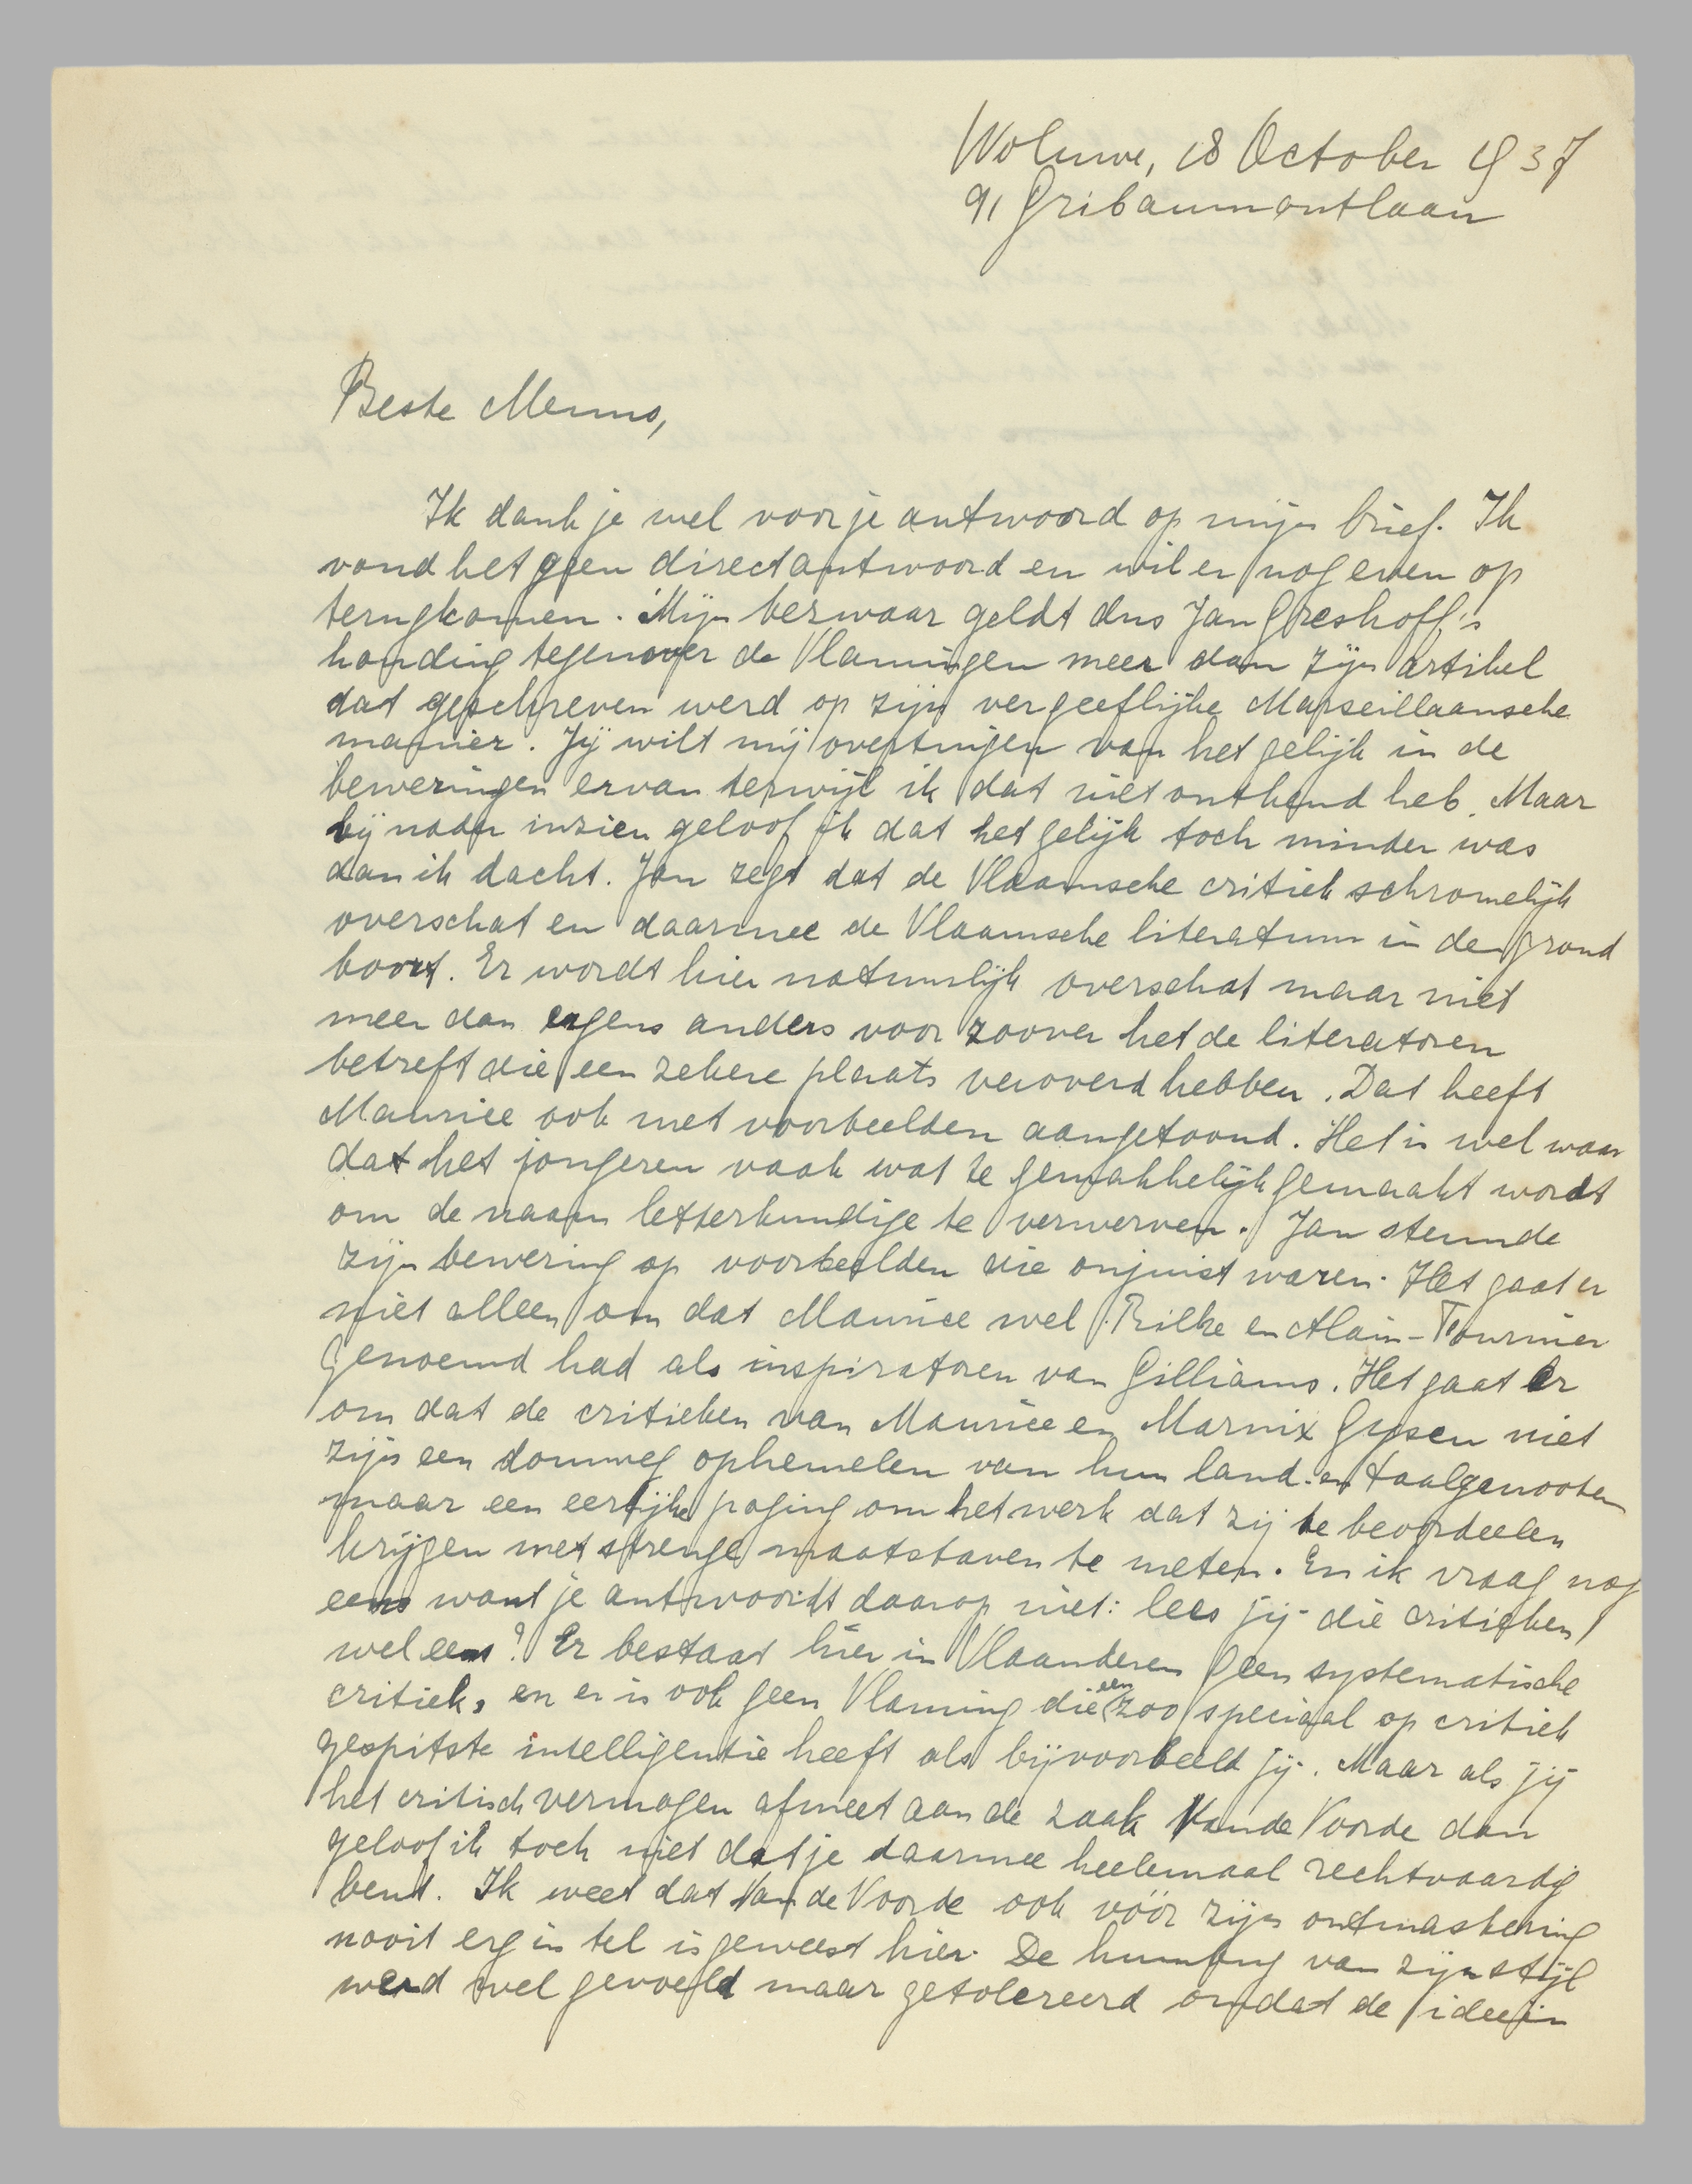 Woluwe, 18 October 1937
91 Gribaumontlaan
Beste Menno,
Ik dank je wel voor je antwoord op mijn brief. Ik
vond het geen direct antwoord en wil er nog even op
terugkomen. Mijn bezwaar geldt dus Jan Greshoff's
houding tegenover de Vlamingen meer dan zijn artikel
dat geschreven werd op zijn vergeeflijke Marseillaansche
manier. Jij wilt mij overtuigen van het gelijk in de
beweringen ervan terwijl ik dat niet ontkend heb. Maar
bij nader inzien geloof ik dat het gelijk toch minder was
dan ik dacht. Jan zegt dat de Vlaamsche critiek schromelijk
overschat en daarmee de Vlaamsche literatuur in den grond
boort. Er wordt hier natuurlijk overschat maar niet
meer dan ergens anders voor zoover het de literatoren
betreft die een zekere plaats veroverd hebben. Dat heeft
Maurice ook met voorbeelden aangetoond. Het is wel waar
dat het jongeren vaak wat te gemakkelijk gemaakt wordt
om de naam letterkundige te verwerven. Jan steunde
zijn bewering op voorbeelden die onjuist waren. Het gaat er
niet alleen om dat Maurice wel Rilke en Alain-Fournier
genoemd had als inspiratoren van Gilliams. Het gaat er
om dat de critieken van Maurice en Marnix Gysen niet
zijn een domweg ophemelen van hun land- en taalgenooten
maar een eerlijke poging om het werk dat zij te beoordeelen
krijgen met strenge maatstaven te meten. En ik vraag nog
eens want je antwoordt daarop niet: lees jij die critieken
wel eens? Er bestaat hier in Vlaanderen geen systematische
critiek, en er is ook geen Vlaming die een zoo speciaal op critiek
gespitste intelligentie heeft als bijvoorbeeld jij. Maar als jij
het critisch vermogen afmeet aan de zaak Van de Voorde dan
geloof ik toch niet dat je daarmee heelemaal rechtvaardig
bent. Ik weet dat Van de Voorde ook vóór zijn ontmaskering
nooit erg in tel is geweest hier. De humbug van zijn stijl
werd wel gevoeld maar getolereerd omdat de ideeën